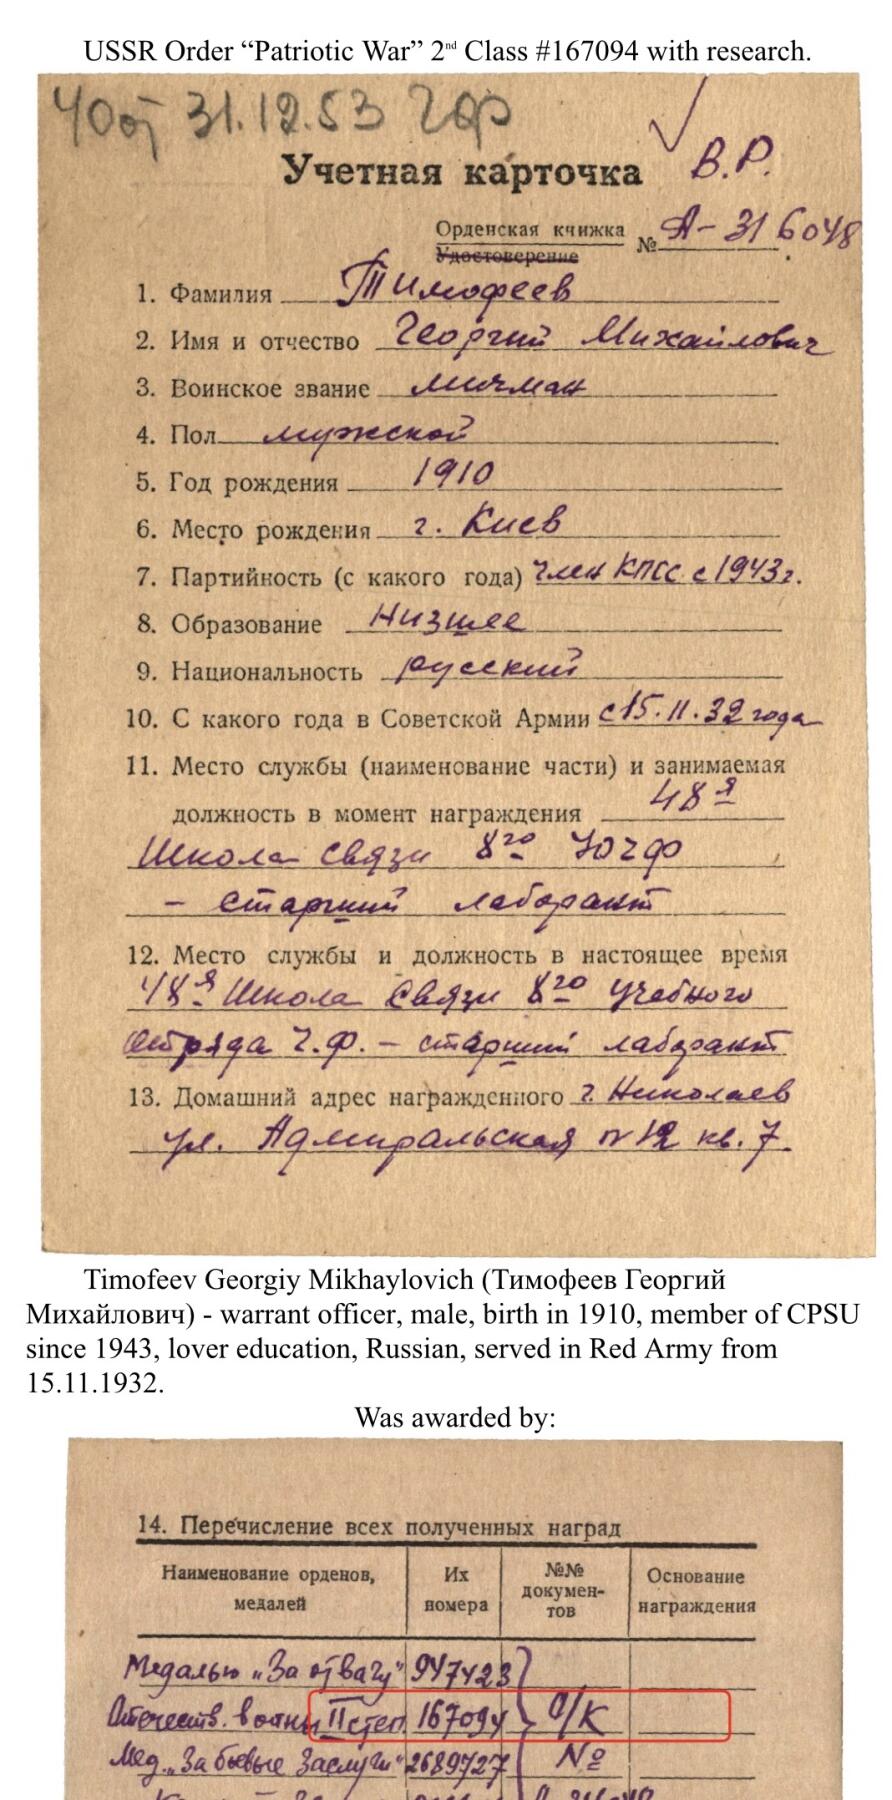 USSR Order “Patriotic War” 2nd Class #167094 with research.
40 от 31.12.53 ЧФ
В.Р.
Учетная карточка
Орденская книжка № А-316048
Удостоверение
1. Фамилия Тимофеев
2. Имя и отчество Георгий Михайлович
3. Воинское звание мичман
4. Пол мужской
5. Год рождения 1910
6. Место рождения г. Киев
7. Партийность (с какого года) член КПСС с 1943 г.
8. Образование Низшее
9. Национальность русский
10. С какого года в Советской Армии с 15.11.32 года
11. Место службы (наименование части) и занимаемая
должность в момент награждения 48я
Школа Связи 8го УОЧФ
- старший лаборант
12. Место службы и должность в настоящее время
48я Школа Связи 8го Учебного
Отряда Ч.Ф. - старший лаборант
13. Домашний адрес награжденного г. Николаев
ул. Адмиральская № 12 кв. 7
Timofeev Georgiy Mikhaylovich (Тимофеев Георгий
Михайлович) - warrant officer, male, birth in 1910, member of CPSU
since 1943, lover education, Russian, served in Red Army from
15.11.1932.
Was awarded by:
14. Перечисление всех полученных наград
Наименование орденов, медалей Их номера №№ докумен-тов Основание награждения
Медалью „За отвагу" 947423
Отечеств. войны II степ. 167094 О/К
Мед. „За боевые Заслуги" 2689727 №